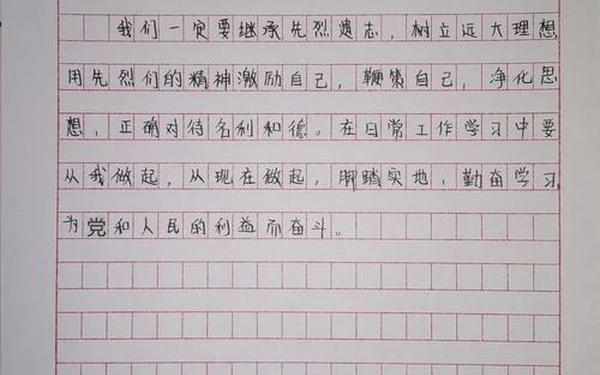 我们一定要继承先烈遗志，树立远大理想
用先烈们的精神激励自己，鞭策自己，净化思
想，正确对待名利和德。在日常工作学习中要
从我做起，从现在做起，脚踏实地，勤奋学习
为党和人民的利益而奋斗。